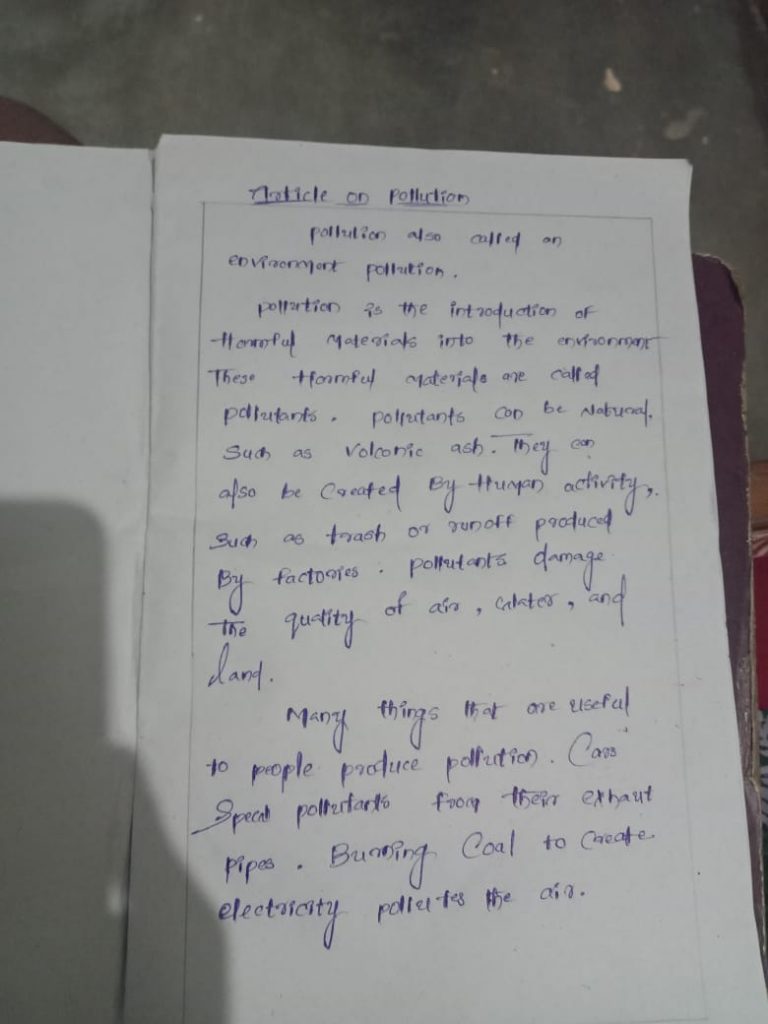 Article on pollution
pollution also called an
environment pollution.
pollution is the introduction of
Harmful Materials into the environment
These Harmful materials are called
pollutants. pollutants can be Natural.
Such as volconic ash. They can
also be Created By Human activity,.
Such as trash or runoff produced
By factories. pollutants damage
The quality of air, water, and
land.
Many things that are useful
to people produce pollution. Cars
Specal pollutants from their exhaut
pipes. Burning Coal to Create
electricity pollutes the air.